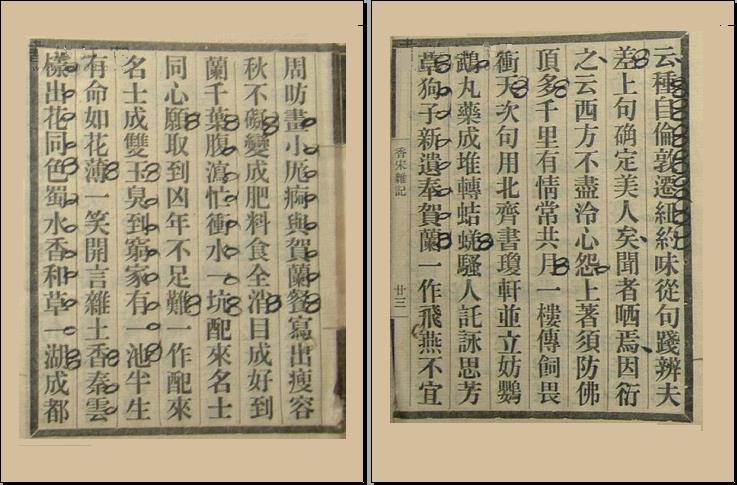 云種自倫敦遷紐約味從句踐辨夫
差上句确定美人矣聞者哂焉因衍
之云西方不盡冷心怨上著須防佛
頂多千里有情常共月一樓傳飼畏
衝天次句用北齊書瓊軒並立妨鸚
鵡丸藥成堆轉蛣蜣騷人託詠思芳
草狗子新遺奉賀蘭一作飛燕不宜
香宋雜記
廿三
周昉畫小卮痾與賀蘭餐寫出瘦容
秋不礙變成肥料食全消目成好到
蘭千葉腹瀉忙衝水一坑配來名士
同心願取到凶年不足難一作配來
名士成雙玉臭到窮家有一池半生
有命如花薄一笑開言雜土香秦雲
樣出花同色蜀水香和草一湖成都